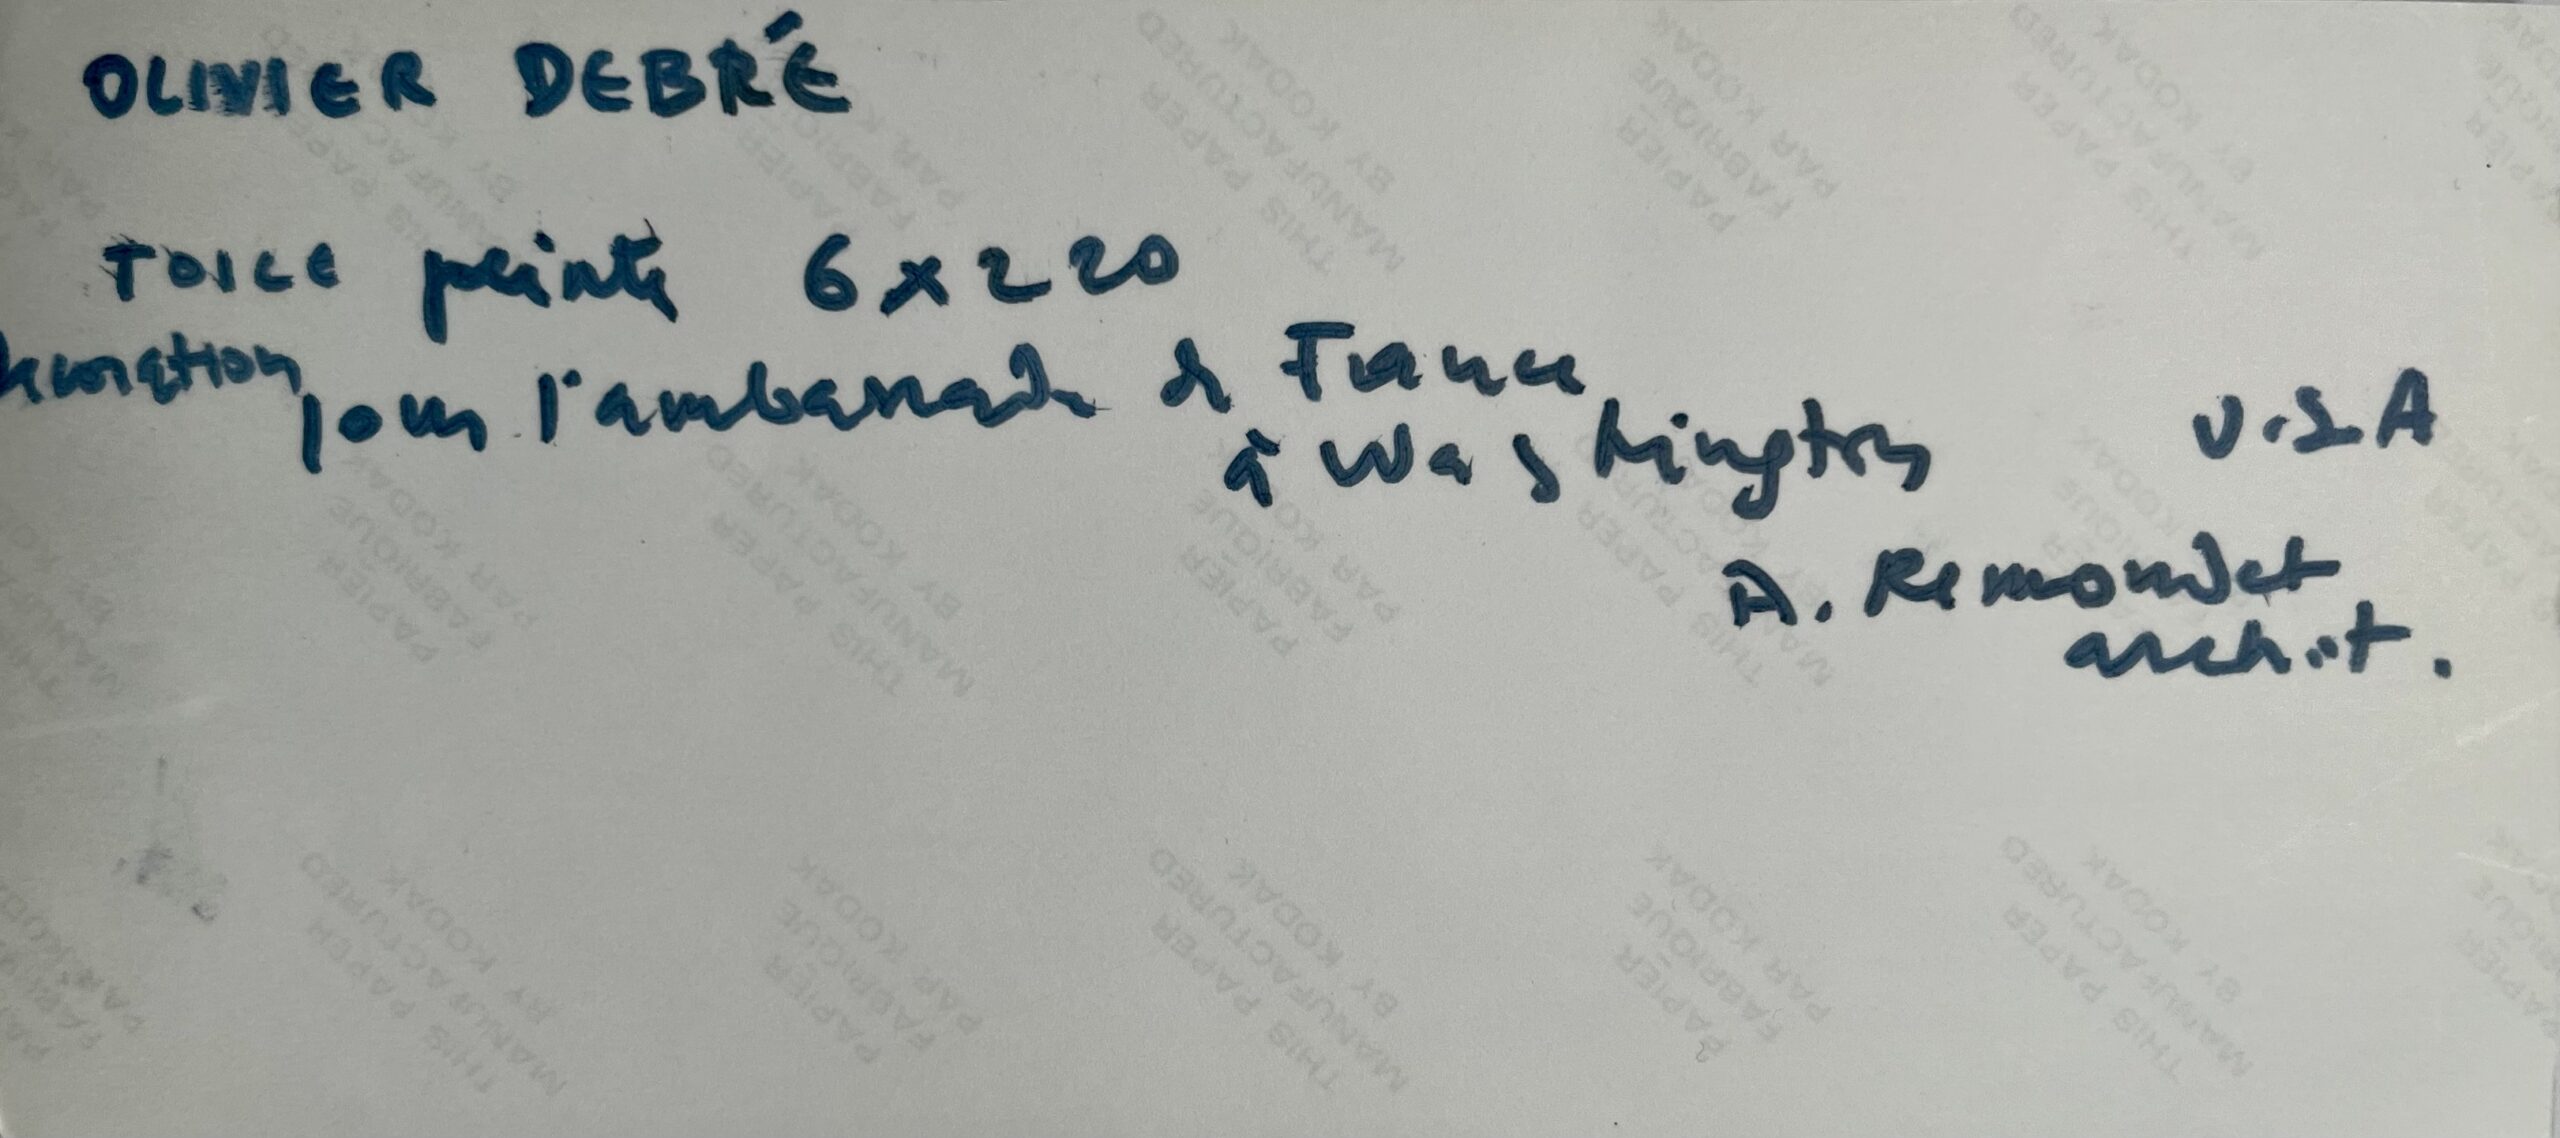 OLIVIER DEBRÉ
TOILE peinte 6 x 2 20
decoration pour l'ambassade de France
à Washington U.S.A
A. Remondet
archit.
THIS PAPER
MANUFACTURED
BY KODAK
PAPIER
FABRIQUE
PAR KODAK